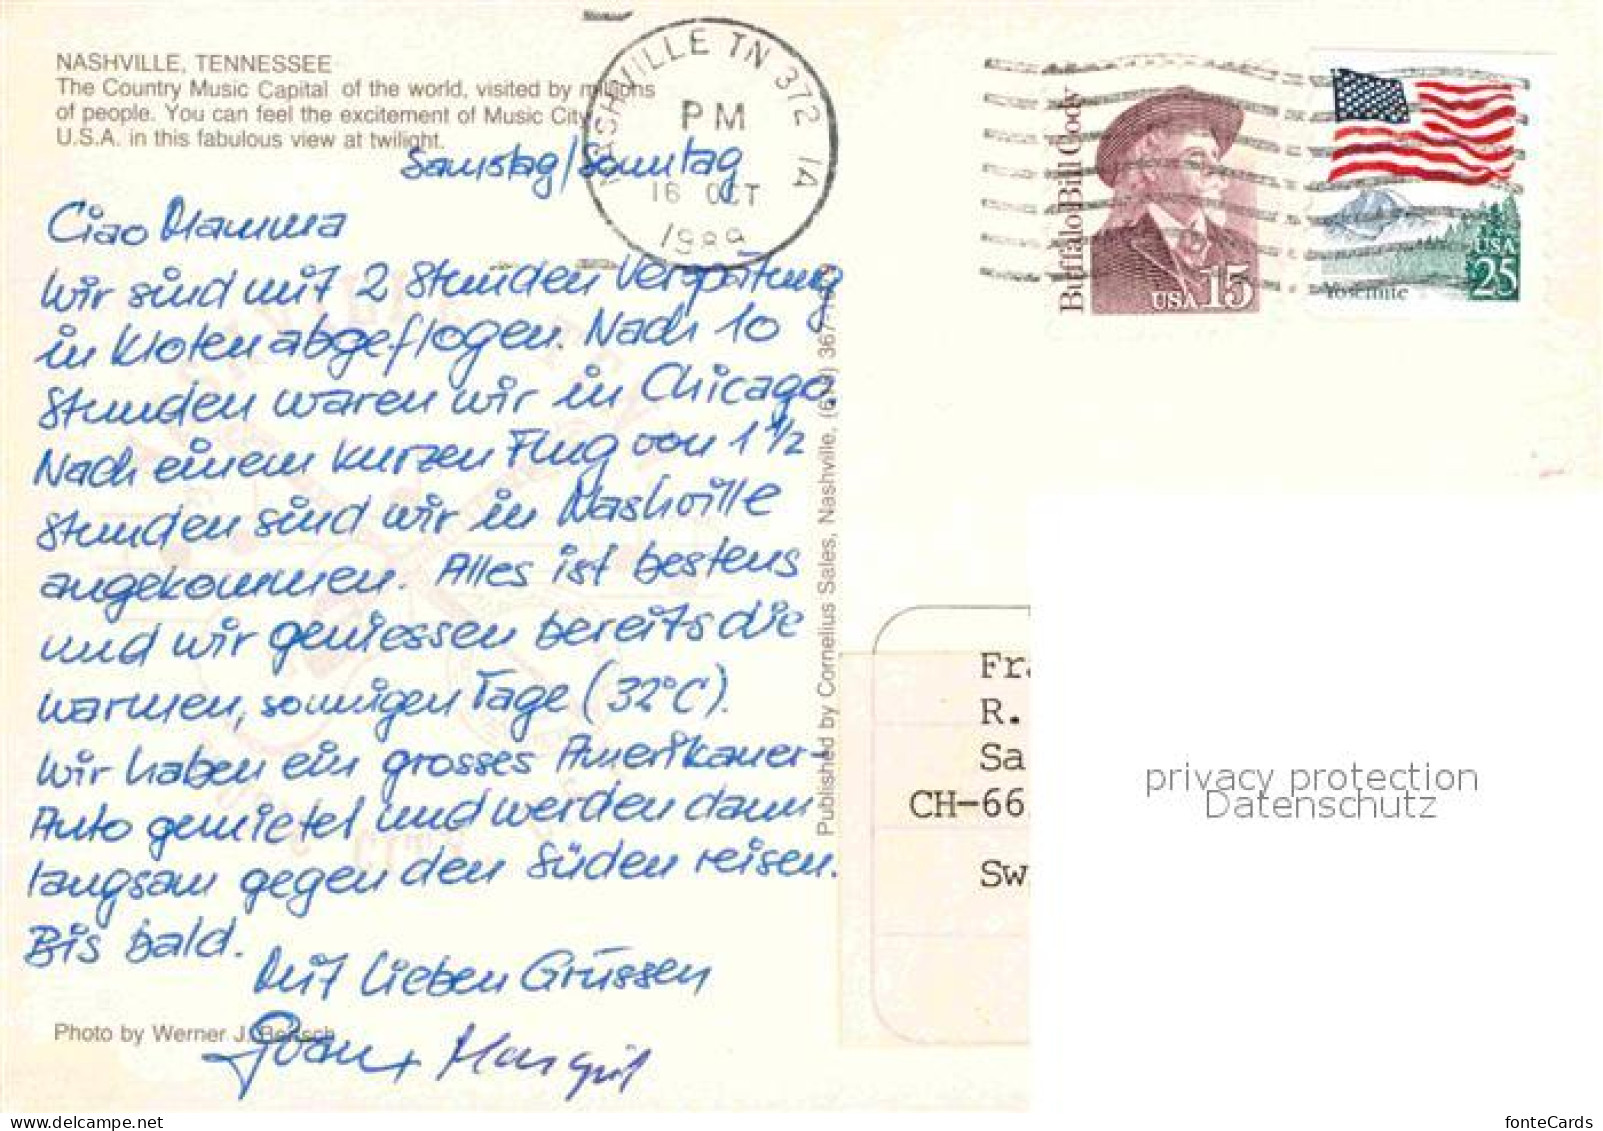 NASHVILLE, TENNESSEE
The Country Music Capital of the world, visited by millions
of people. You can feel the excitement of Music City
U.S.A. in this fabulous view at twilight.
NASHVILLE TN 372
PM
16 OCT
1989
1A
Buffalo Bill Cody
USA 15
Yosemite
USA
25
Samstag/Sonntag
Ciao Mamma
Wir sind mit 2 Stunden Verspätung
in Kloten abgeflogen. Nach 10
Stunden waren wir in Chicago.
Nach einem kurzen Flug von 1 1/2
Stunden sind wir in Nashville
angekommen. Alles ist bestens
und wir geniessen bereits die
warmen, sonnigen Tage (32°C).
Wir haben ein grosses Amerikaner-
Auto gemietet und werden dann
langsam gegen den Süden reisen.
Bis bald.
Mit lieben Grüssen
Margrit
Photo by Werner J.
Published by Cornelius Sales, Nashville,
Fra
R.
Sa
CH-66
Sw
privacy protection
Datenschutz
fonteCards